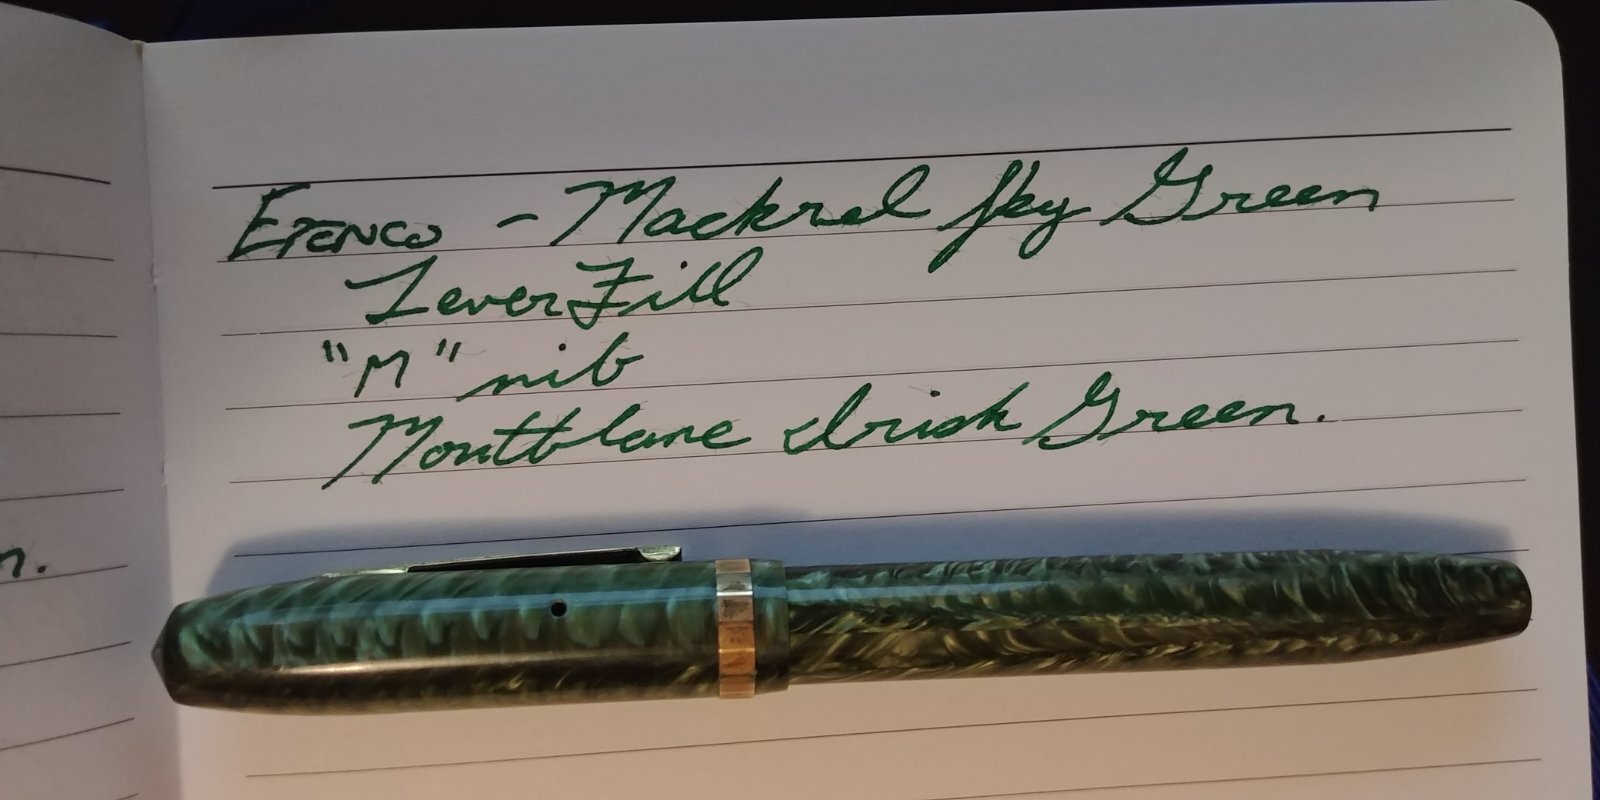 Epenco - Mackrel Sky Green
Lever Fill
"M" nib
Montblanc Irish Green.
n.